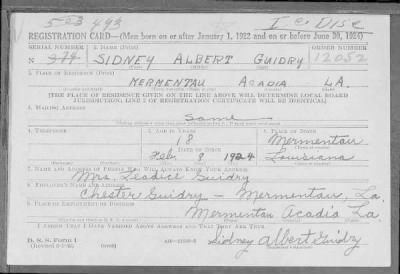 503 493 I-C, Disc
REGISTRATION CARD—(Men born on or after January 1, 1922 and on or before June 30, 1924)
SERIAL NUMBER 1. NAME (Print) ORDER NUMBER
N SIDNEY ALBERT GUIDRY 12052
2. PLACE OF RESIDENCE (Print)
MERMENTAU ACADIA LA.
[THE PLACE OF RESIDENCE GIVEN ON THE LINE ABOVE WILL DETERMINE LOCAL BOARD
JURISDICTION; LINE 2 OF REGISTRATION CERTIFICATE WILL BE IDENTICAL]
3. MAILING ADDRESS
Same
4. TELEPHONE 5. AGE IN YEARS 6. PLACE OF BIRTH
18 Mermentau
DATE OF BIRTH
Feb. 8 1924 Louisiana
7. NAME AND ADDRESS OF PERSON WHO WILL ALWAYS KNOW YOUR ADDRESS
Mrs. Guidry
8. EMPLOYER'S NAME AND ADDRESS
Chester Guidry — Mermentau, La.
9. PLACE OF EMPLOYMENT OR BUSINESS
Mermentau Acadia La
I AFFIRM THAT I HAVE VERIFIED ABOVE ANSWERS AND THAT THEY ARE TRUE.
D. S. S. Form 1
Sidney Albert Guidry